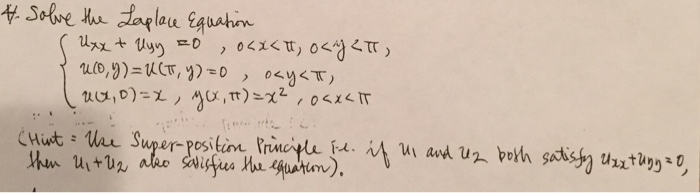 4. Solve the Laplace Equation
Uxx + Uyy = 0 , 0<x<π, 0<y<π,
u(0,y)=u(π,y)=0 , 0<y<π,
u(x,0)=x , y(x,π)=x² , 0<x<π
(Hint: Use Super-position Principle i.e. if u1 and u2 both satisfy uxx+uyy=0,
then u1+u2 also satisfies the equation).